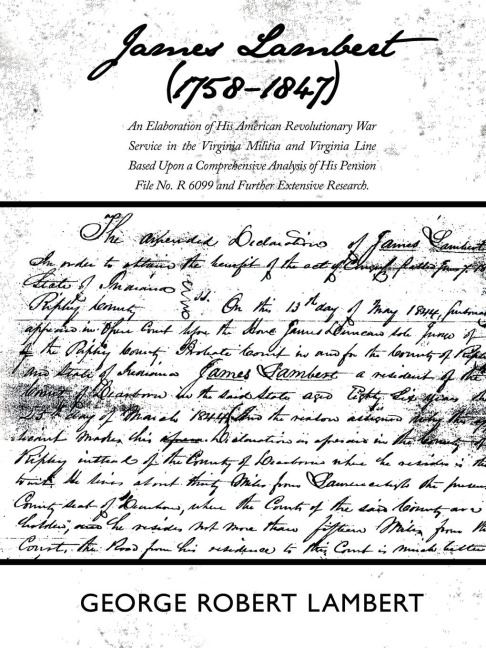 James Lambert
(1758-1847)
An Elaboration of His American Revolutionary War
Service in the Virginia Militia and Virginia Line
Based Upon a Comprehensive Analysis of His Pension
File No. R 6099 and Further Extensive Research.
The amended Declaration of James Lambert
In order to obtain the benefit of the act of Congress passed June 7
State of Indiana
Ripley County ss. On this 13th day of May 1844, personally
appeared in open Court before the Hone James Duncan sole Judge of
of the Ripley County Probate Court in and for the County of Ripley
and State of Indiana James Lambert a resident of the
County of Dearborn in the said State aged Eighty Six years the
day of March 1844 and the reason assigned
makes this Declaration in open in the County of
Ripley instead of the County of Dearborn where he resides is this
to wit. He lives about thirty Miles from Lawrenceburgh the present
County seat of Dearborn, where the Courts of the said County are
holden, and he resides not more than fifteen Miles from the
Court, the Road from his residence to this Court is much better
GEORGE ROBERT LAMBERT